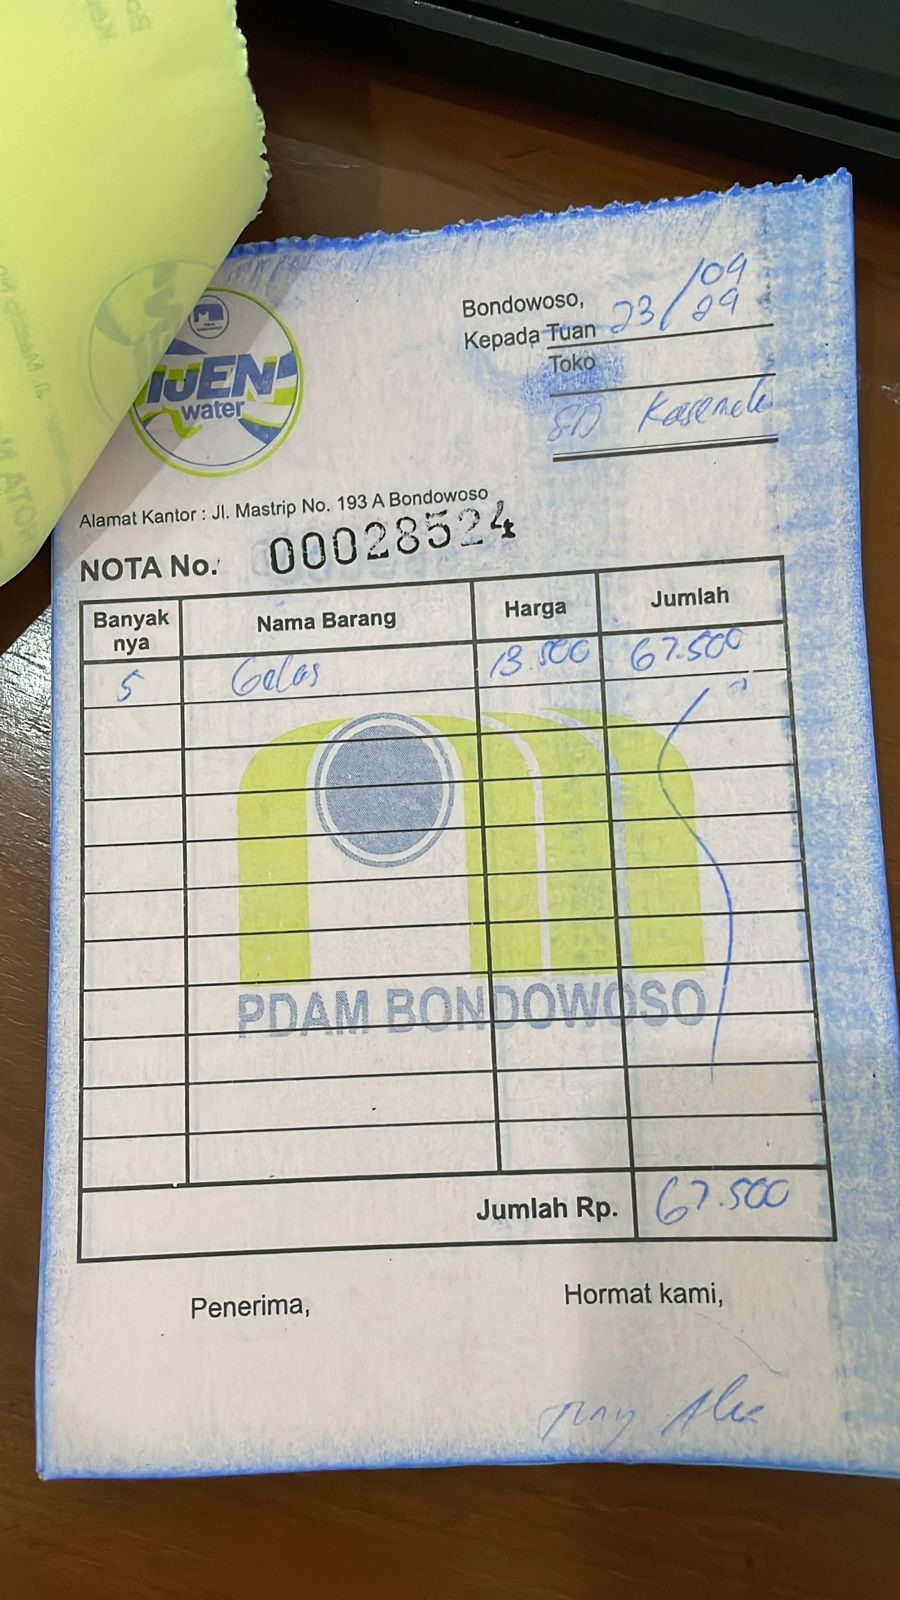 IJEN
water
Bondowoso, 23/09
29
Kepada Tuan
Toko
SD
Alamat Kantor : Jl. Mastrip No. 193 A Bondowoso
NOTA No. 00028524
Banyak nya Nama Barang Harga Jumlah
5 Gelas 13.500 67.500
PDAM BONDOWOSO
Jumlah Rp. 67.500
Penerima, Hormat kami,